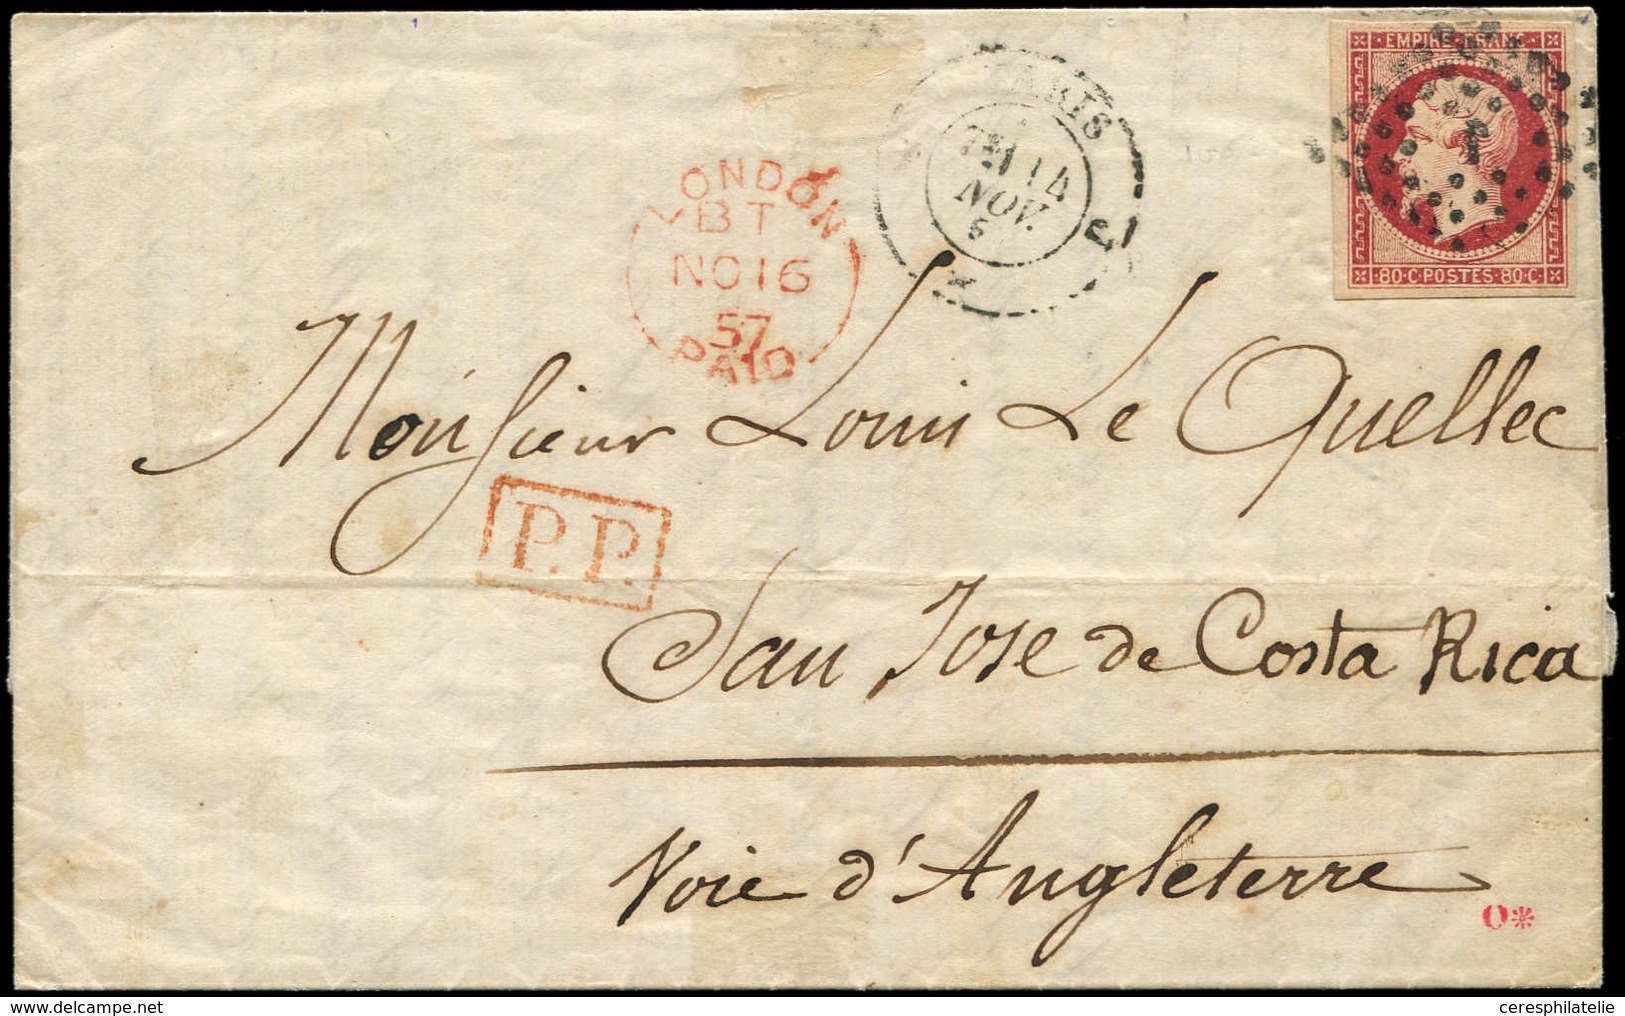 EMPIRE FRANC
80·C·POSTES·80·C
PARIS
14
NOV.
5
LONDON
BT
NO 16
57
PAID
Monsieur Louis Le Quellec
P.P.
San Jose de Costa Rica
Voie d'Angleterre
O*
ceresphilatelie